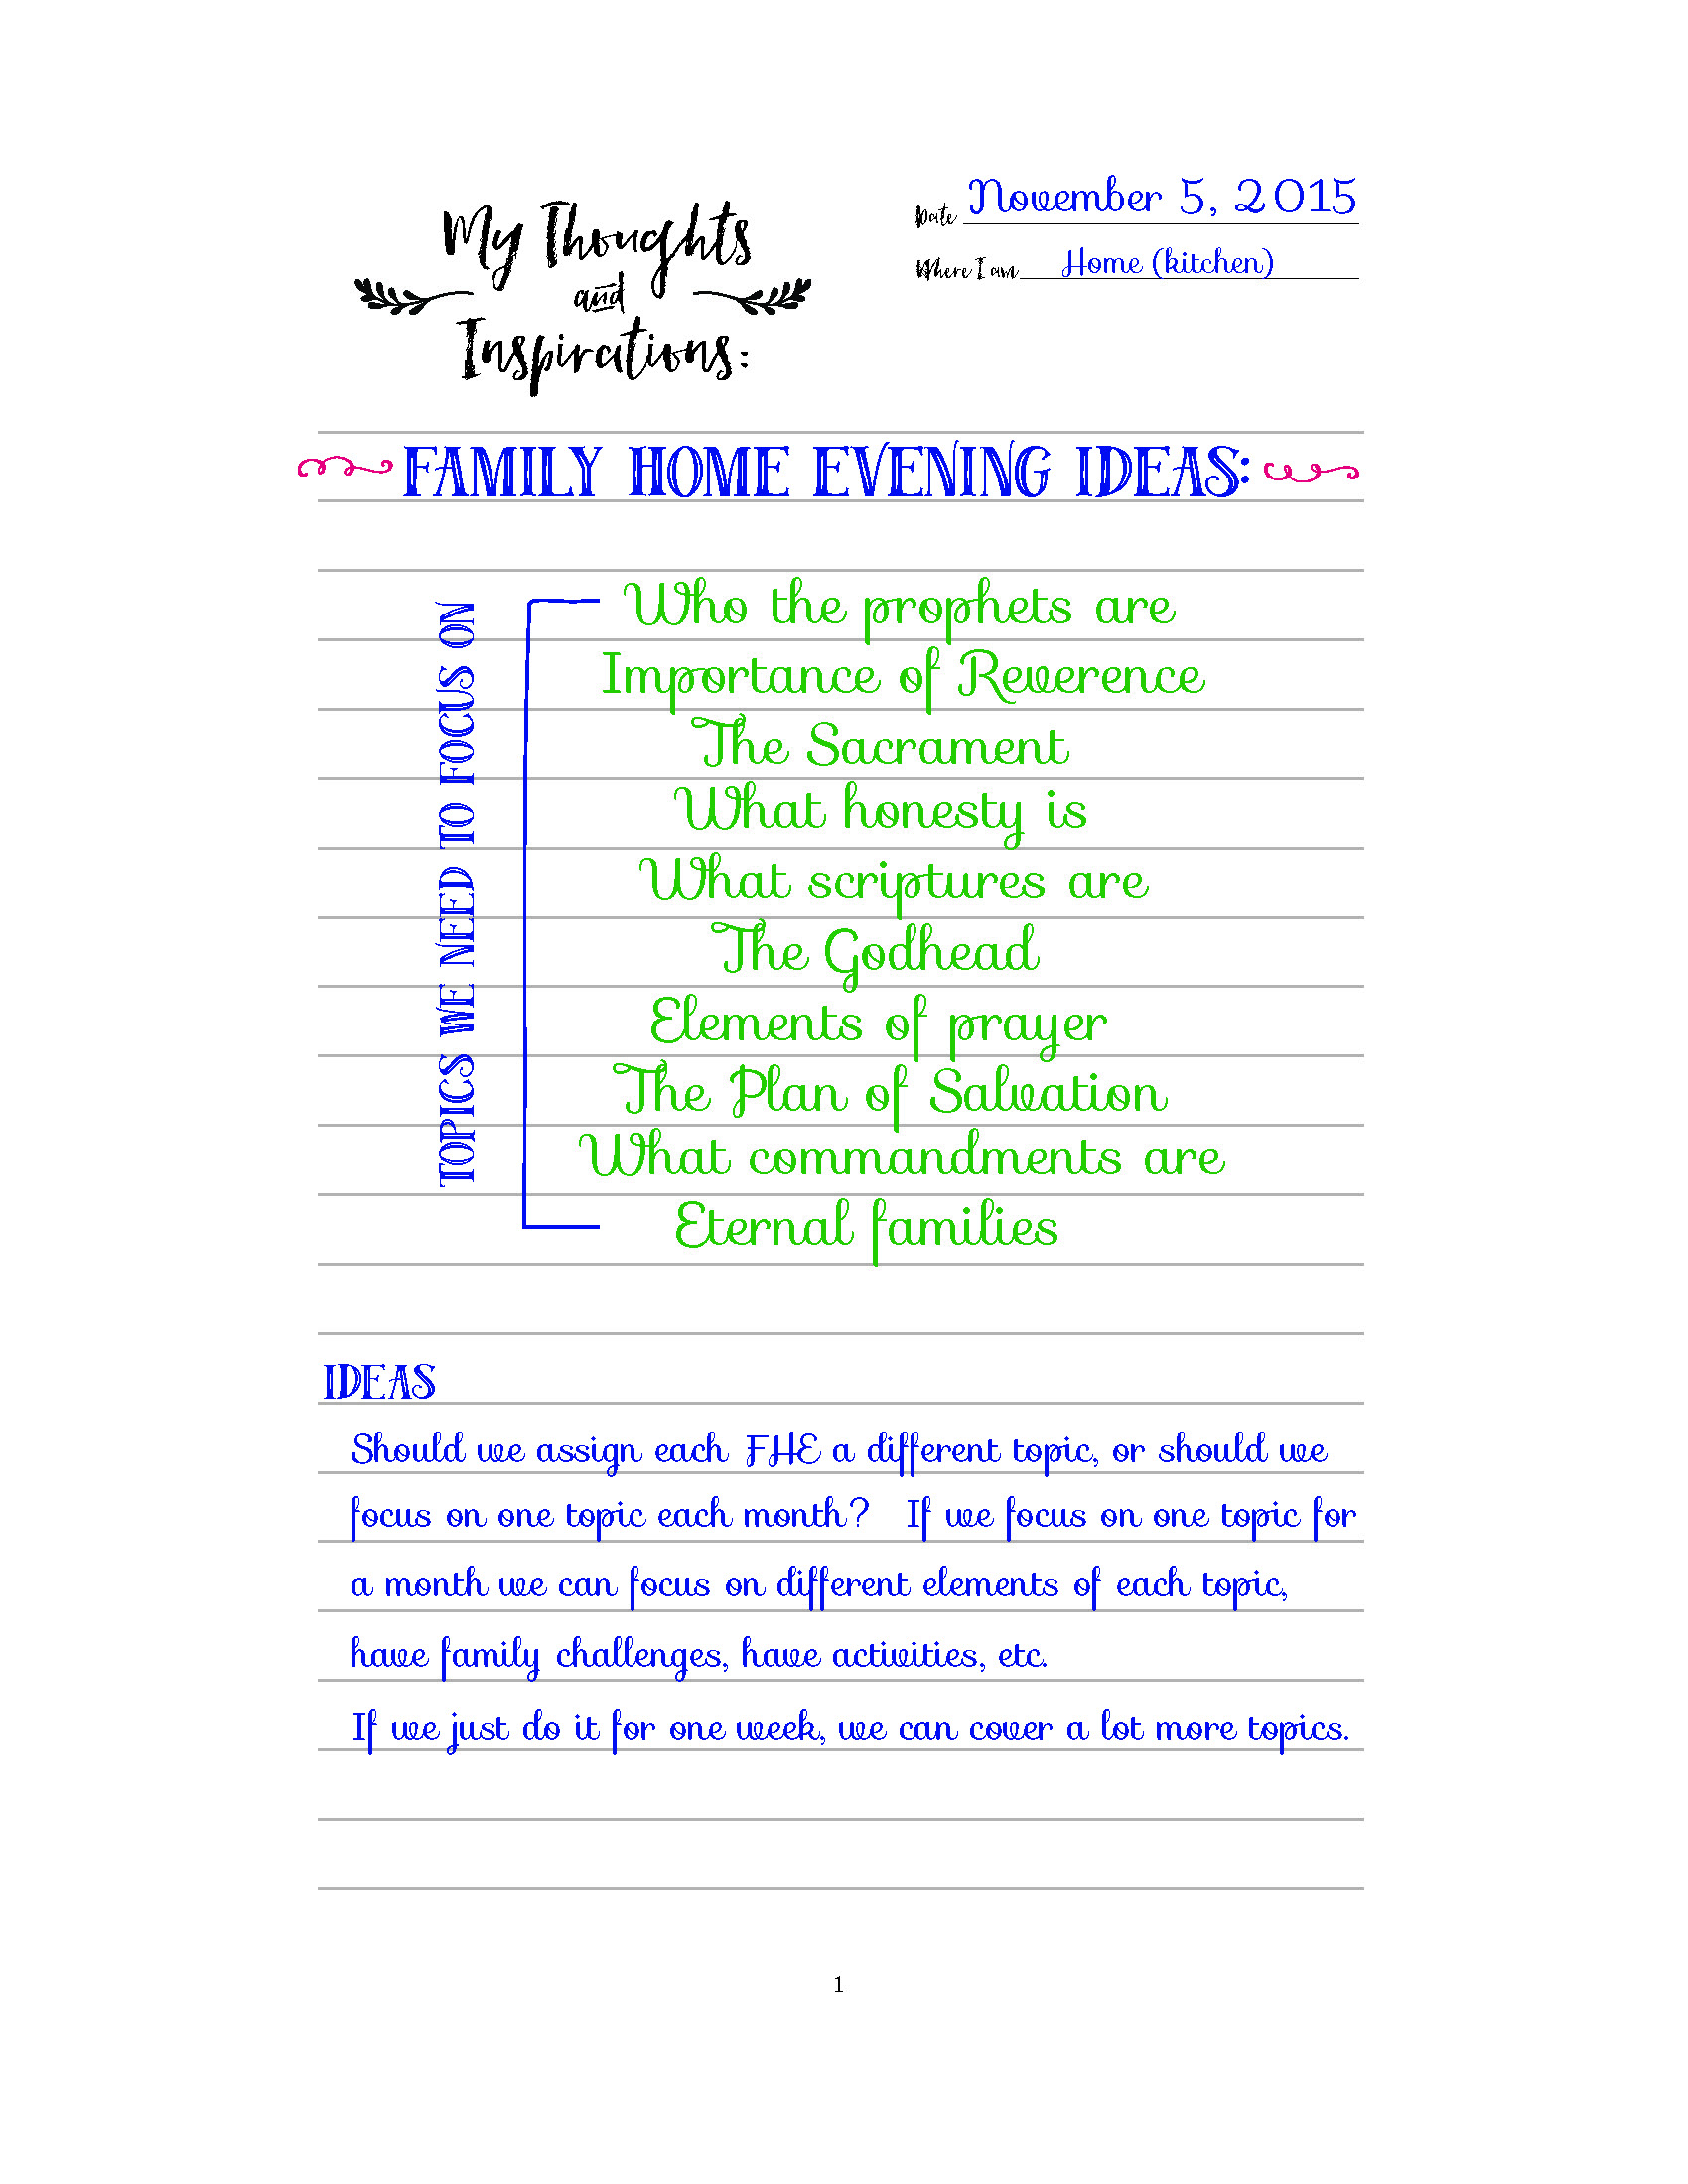 My Thoughts
and
Inspirations:
Date November 5, 2015
Where I am Home (kitchen)
FAMILY HOME EVENING IDEAS:
TOPICS WE NEED TO FOCUS ON
Who the prophets are
Importance of Reverence
The Sacrament
What honesty is
What scriptures are
The Godhead
Elements of prayer
The Plan of Salvation
What commandments are
Eternal families
IDEAS
Should we assign each FHE a different topic, or should we
focus on one topic each month? If we focus on one topic for
a month we can focus on different elements of each topic,
have family challenges, have activities, etc.
If we just do it for one week, we can cover a lot more topics.
1